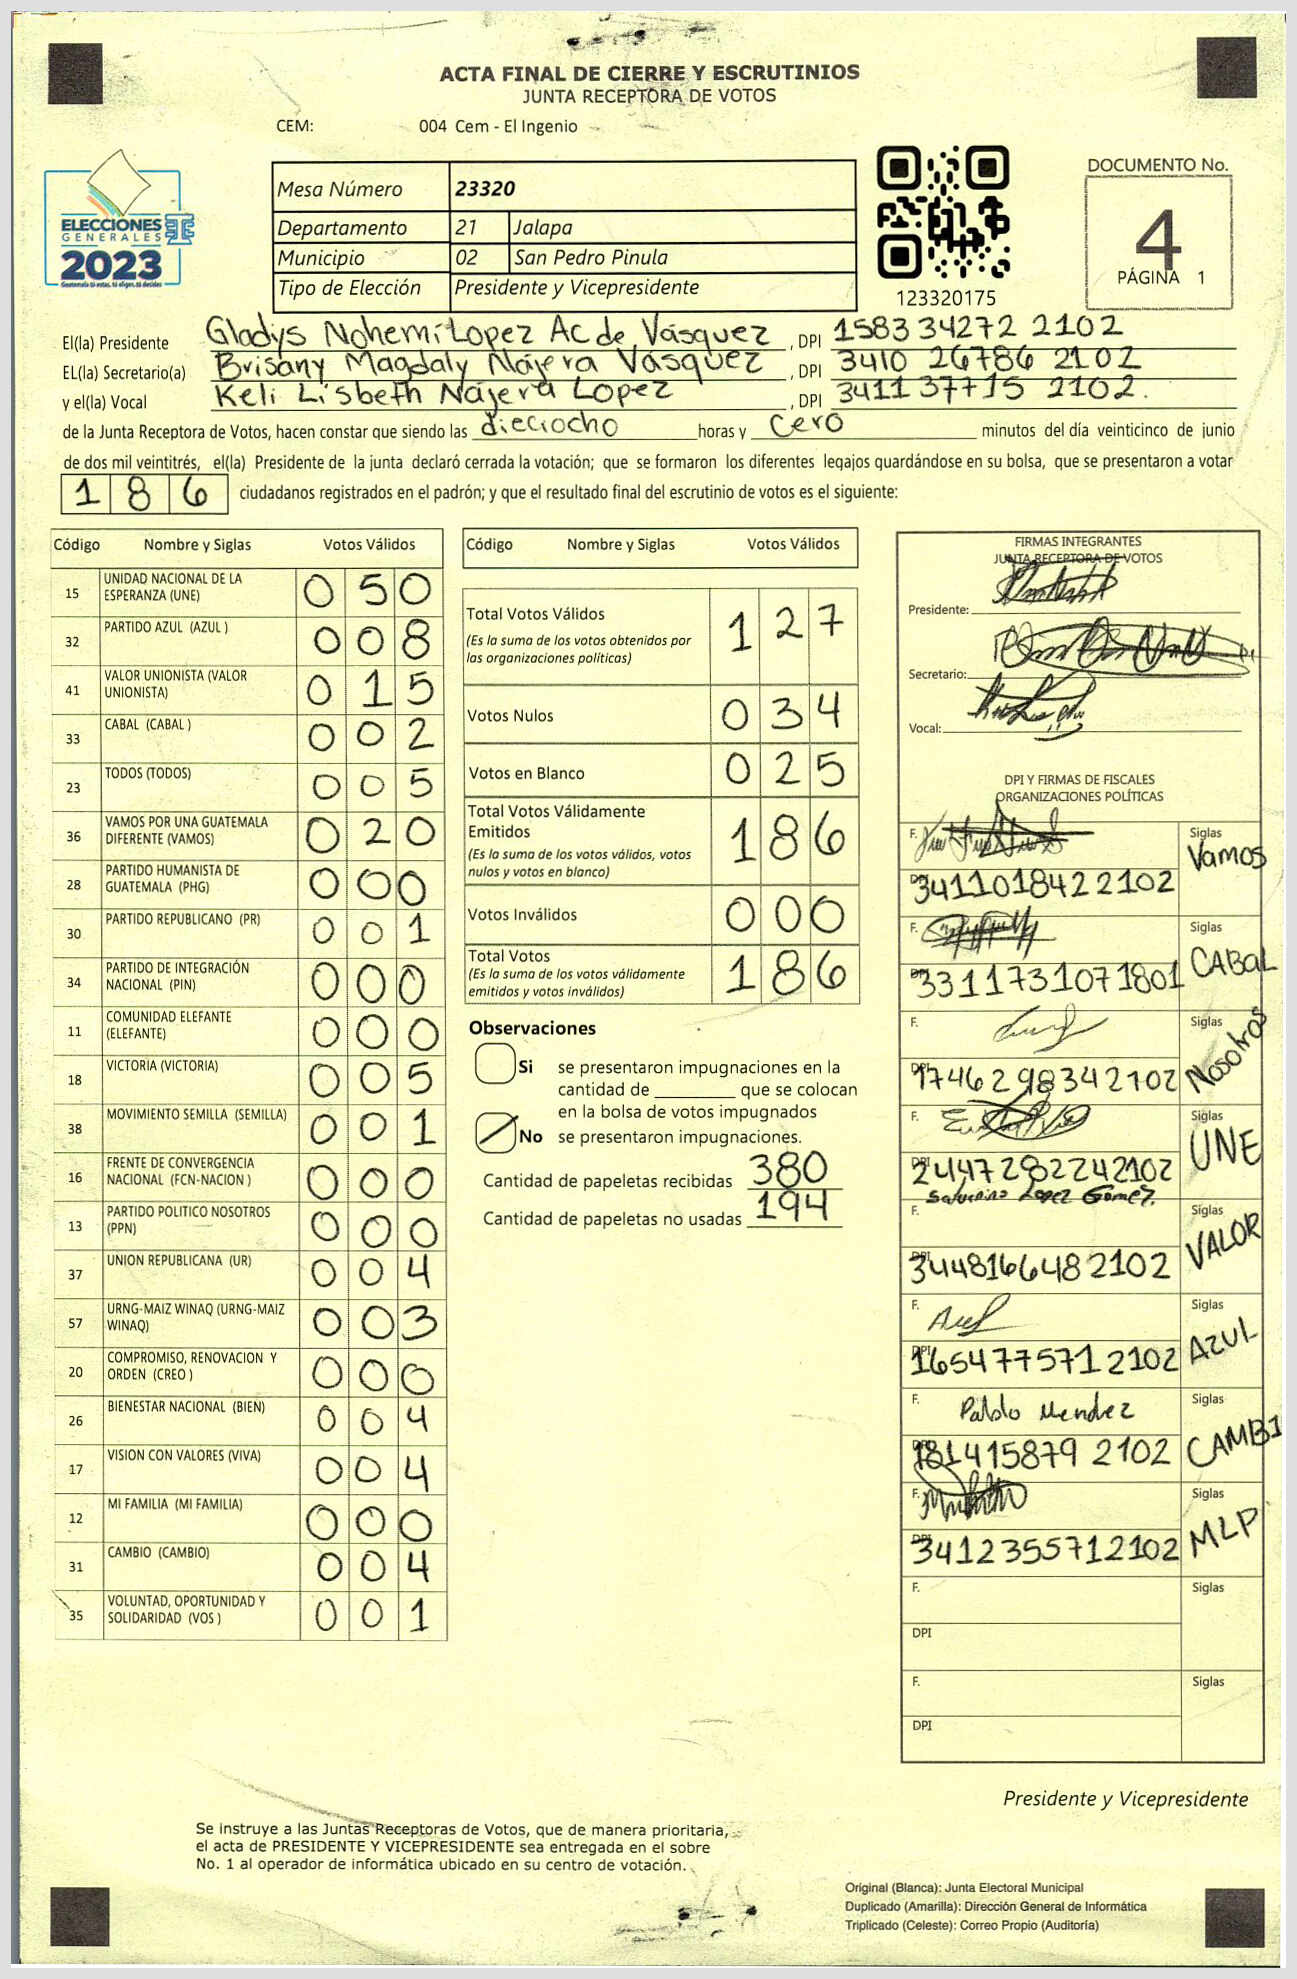 ACTA FINAL DE CIERRE Y ESCRUTINIOS
JUNTA RECEPTORA DE VOTOS
CEM: 004 Cem - El Ingenio
ELECCIONES
GENERALES
2023
Guatemala tú estas, tú eliges, tú decides
Mesa Número 23320
Departamento 21 Jalapa
Municipio 02 San Pedro Pinula
Tipo de Elección Presidente y Vicepresidente
123320175
DOCUMENTO No.
4
PÁGINA 1
El(la) Presidente Gladys Nohemí Lopez Ac de Vásquez, DPI 1583 34272 2102
EL(la) Secretario(a) Brisany Magdaly Nájera Vásquez, DPI 3410 26786 2102
y el(la) Vocal Keli Lisbeth Nájera Lopez, DPI 3411 37715 2102.
de la Junta Receptora de Votos, hacen constar que siendo las dieciocho horas y cero minutos del día veinticinco de junio
de dos mil veintitrés, el(la) Presidente de la junta declaró cerrada la votación; que se formaron los diferentes legajos guardándose en su bolsa, que se presentaron a votar
186 ciudadanos registrados en el padrón; y que el resultado final del escrutinio de votos es el siguiente:
Código Nombre y Siglas Votos Válidos
15 UNIDAD NACIONAL DE LA ESPERANZA (UNE) 050
32 PARTIDO AZUL (AZUL ) 008
41 VALOR UNIONISTA (VALOR UNIONISTA) 015
33 CABAL (CABAL ) 002
23 TODOS (TODOS) 005
36 VAMOS POR UNA GUATEMALA DIFERENTE (VAMOS) 020
28 PARTIDO HUMANISTA DE GUATEMALA (PHG) 000
30 PARTIDO REPUBLICANO (PR) 001
34 PARTIDO DE INTEGRACIÓN NACIONAL (PIN) 000
11 COMUNIDAD ELEFANTE (ELEFANTE) 000
18 VICTORIA (VICTORIA) 005
38 MOVIMIENTO SEMILLA (SEMILLA) 001
16 FRENTE DE CONVERGENCIA NACIONAL (FCN-NACION ) 000
13 PARTIDO POLITICO NOSOTROS (PPN) 000
37 UNION REPUBLICANA (UR) 004
57 URNG-MAIZ WINAQ (URNG-MAIZ WINAQ) 003
20 COMPROMISO, RENOVACION Y ORDEN (CREO ) 000
26 BIENESTAR NACIONAL (BIEN) 004
17 VISION CON VALORES (VIVA) 004
12 MI FAMILIA (MI FAMILIA) 000
31 CAMBIO (CAMBIO) 004
35 VOLUNTAD, OPORTUNIDAD Y SOLIDARIDAD (VOS ) 001
Código Nombre y Siglas Votos Válidos
Total Votos Válidos 127
(Es la suma de los votos obtenidos por
las organizaciones políticas)
Votos Nulos 034
Votos en Blanco 025
Total Votos Válidamente
Emitidos 186
(Es la suma de los votos válidos, votos
nulos y votos en blanco)
Votos Inválidos 000
Total Votos 186
(Es la suma de los votos válidamente
emitidos y votos inválidos)
Observaciones
Si se presentaron impugnaciones en la
cantidad de ________ que se colocan
en la bolsa de votos impugnados
No se presentaron impugnaciones.
Cantidad de papeletas recibidas 380
Cantidad de papeletas no usadas 194
FIRMAS INTEGRANTES
JUNTA RECEPTORA DE VOTOS
Presidente:
Secretario:
Vocal:
DPI Y FIRMAS DE FISCALES
ORGANIZACIONES POLÍTICAS
F. Siglas Vamos
DPI 3411018422102
F. Siglas CABAL
DPI 3311731071801
F. Siglas Nosotros
DPI 1746298342102
F. Siglas UNE
DPI 2447282242102
Saturnino Lopez Gomez.
F. Siglas VALOR
DPI 3448166482102
F. Siglas AZUL
DPI 1654775712102
F. Pablo Mendez Siglas CAMBI
DPI 181415879 2102
F. Siglas MLP
DPI 3412355712102
F. Siglas
DPI
F. Siglas
DPI
Presidente y Vicepresidente
Se instruye a las Juntas Receptoras de Votos, que de manera prioritaria,
el acta de PRESIDENTE Y VICEPRESIDENTE sea entregada en el sobre
No. 1 al operador de informática ubicado en su centro de votación.
Original (Blanca): Junta Electoral Municipal
Duplicado (Amarilla): Dirección General de Informática
Triplicado (Celeste): Correo Propio (Auditoría)